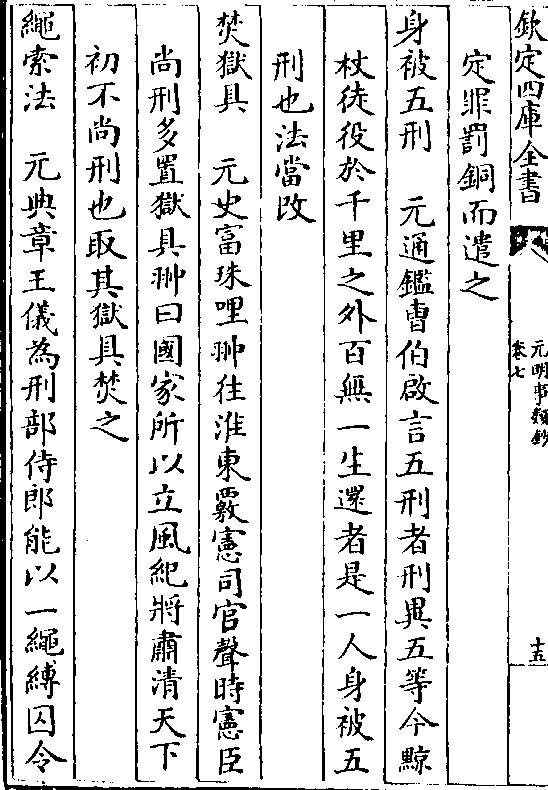 欽定四庫全書
元明事類鈔
卷七
十五
定罪罰銅而遣之
身被五刑　元通鑑曹伯啟言五刑者刑異五等今黥
杖徒役於千里之外百無一生還者是一人身被五
刑也法當改
焚獄具　元史富珠哩翀往淮東覈憲司官聲時憲臣
尚刑多置獄具翀曰國家所以立風紀將肅清天下
初不尚刑也取其獄具焚之
繩索法　元典章王儀為刑部侍郎能以一繩縛囚令